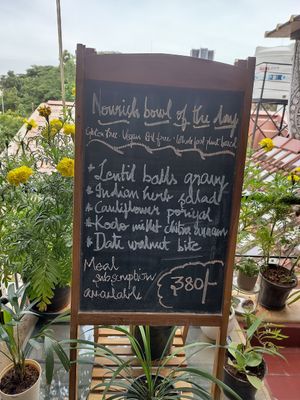 Nourish bowl of the day
Gluten free Vegan Oil free · Whole food plant based
* Lentil balls gravy
* Indian herb salad
* Cauliflower poriyal
* Kodo millet chitra annam
* Date walnut bite
Meal
subscription
available
380/-